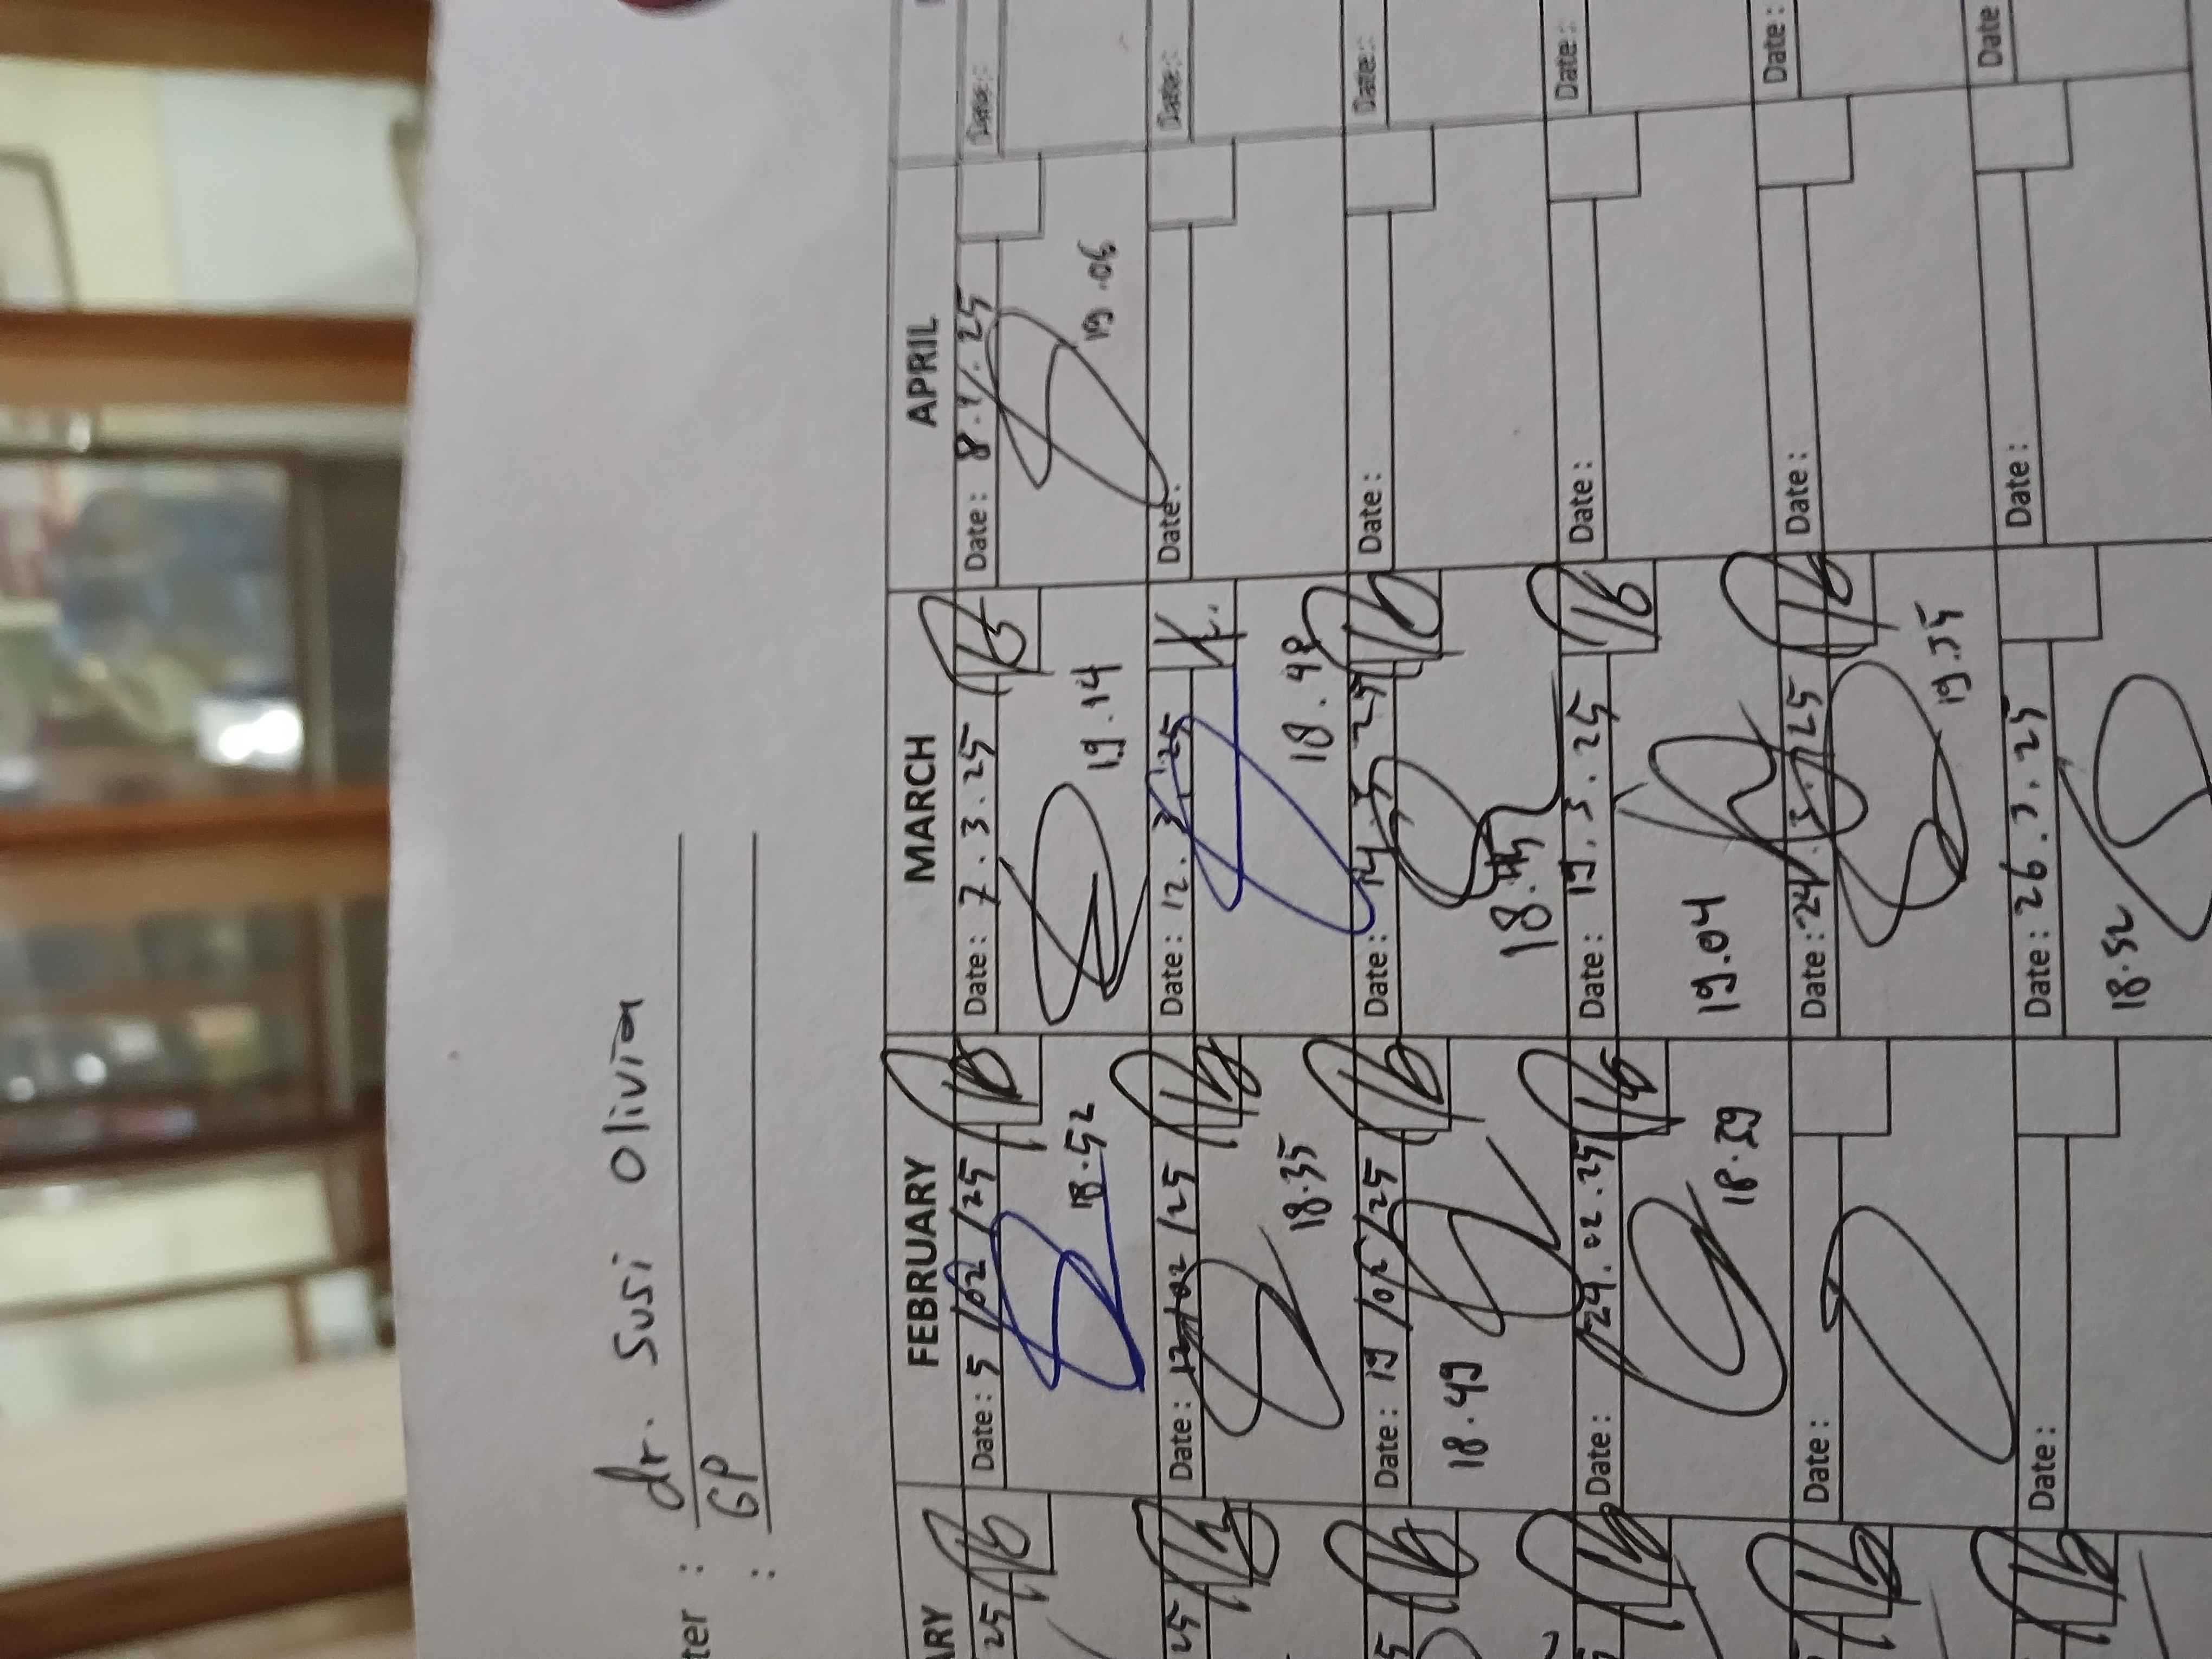 ter : dr. Susi Olivia
: GP
ARY FEBRUARY MARCH APRIL
25 Date: 5/02/25 Date: 7.3.25 Date: 8.4.25 Date:
18.52 19.14 19.06
25 Date: 12/02/25 Date: 12.3.25 Date: Date:
18.35 18.48
5 Date: 19/02/25 Date: 14.3.25 Date: Date:
18.49 18.45
Date: 24.02.25 Date: 19.3.25 Date: Date:
18.39 19.04
Date: Date: 24.3.25 Date: Date:
19.35
Date: Date: 26.3.25 Date: Date
18.52